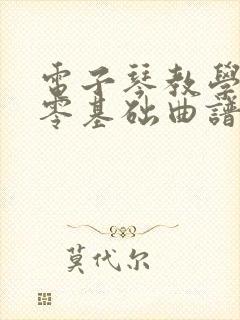 電子琴教學
零基础曲譜
莫代尔